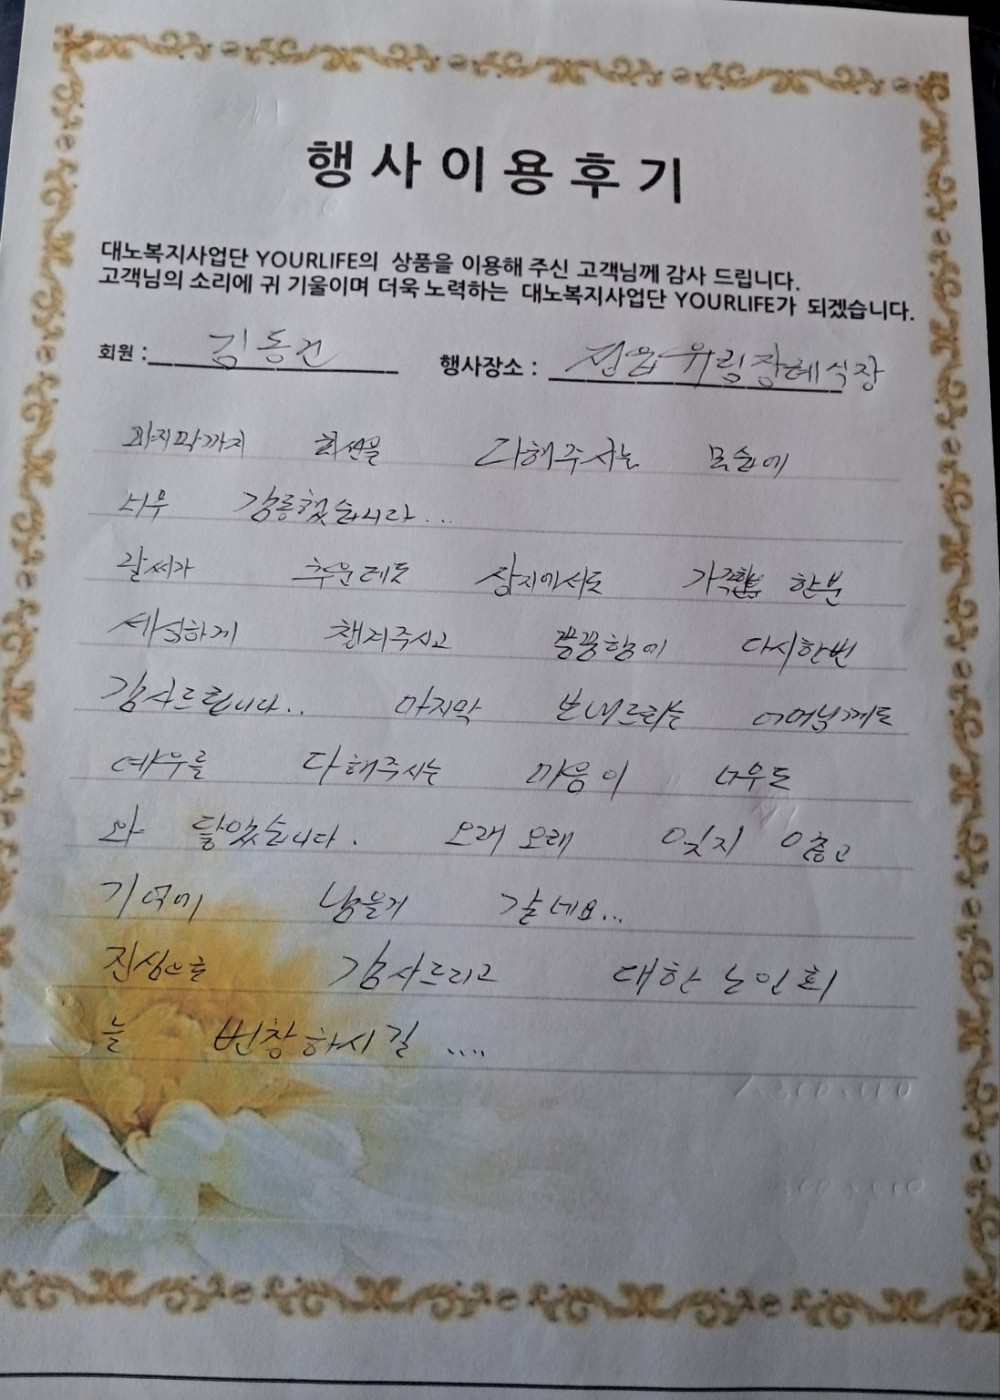 행사이용후기
대노복지사업단 YOURLIFE의 상품을 이용해 주신 고객님께 감사 드립니다.
고객님의 소리에 귀 기울이며 더욱 노력하는 대노복지사업단 YOURLIFE가 되겠습니다.
회원 : 김동건 행사장소 : 정읍유림장례식장
마지막까지 최선을 다해주시는 모습에
너무 감동했습니다...
날씨가 추운데도 장지에서도 한분
세심하게 챙겨주시고 다시한번
감사드립니다.. 마지막 보내드리는 어머님께도
예우를 다해주시는 마음이 너무도
와 닿았습니다. 오래 오래 잊지 않고
기억에 남을거 같네요...
진심으로 감사드리고 대한노인회
늘 번창하시길 ....